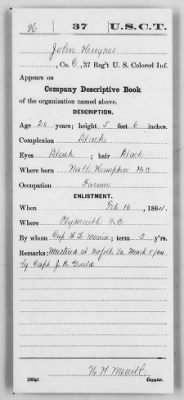 96 37 U.S.C.T.
John Hughes
, Co. C, 37 Reg't U. S. Colored Inf.
Appears on
Company Descriptive Book
of the organization named above.
DESCRIPTION.
Age 20 years; height 5 feet 6 inches.
Complexion Black
Eyes Black ; hair Black
Where born North Hampton N.C.
Occupation Farmer
ENLISTMENT.
When Feb 16 , 1864.
Where Plymouth N.C.
By whom Cap ; term 3 y'rs.
Remarks: Mustered at Norfolk Va. March
by Capt. J. H.
Merrill
Copyist.